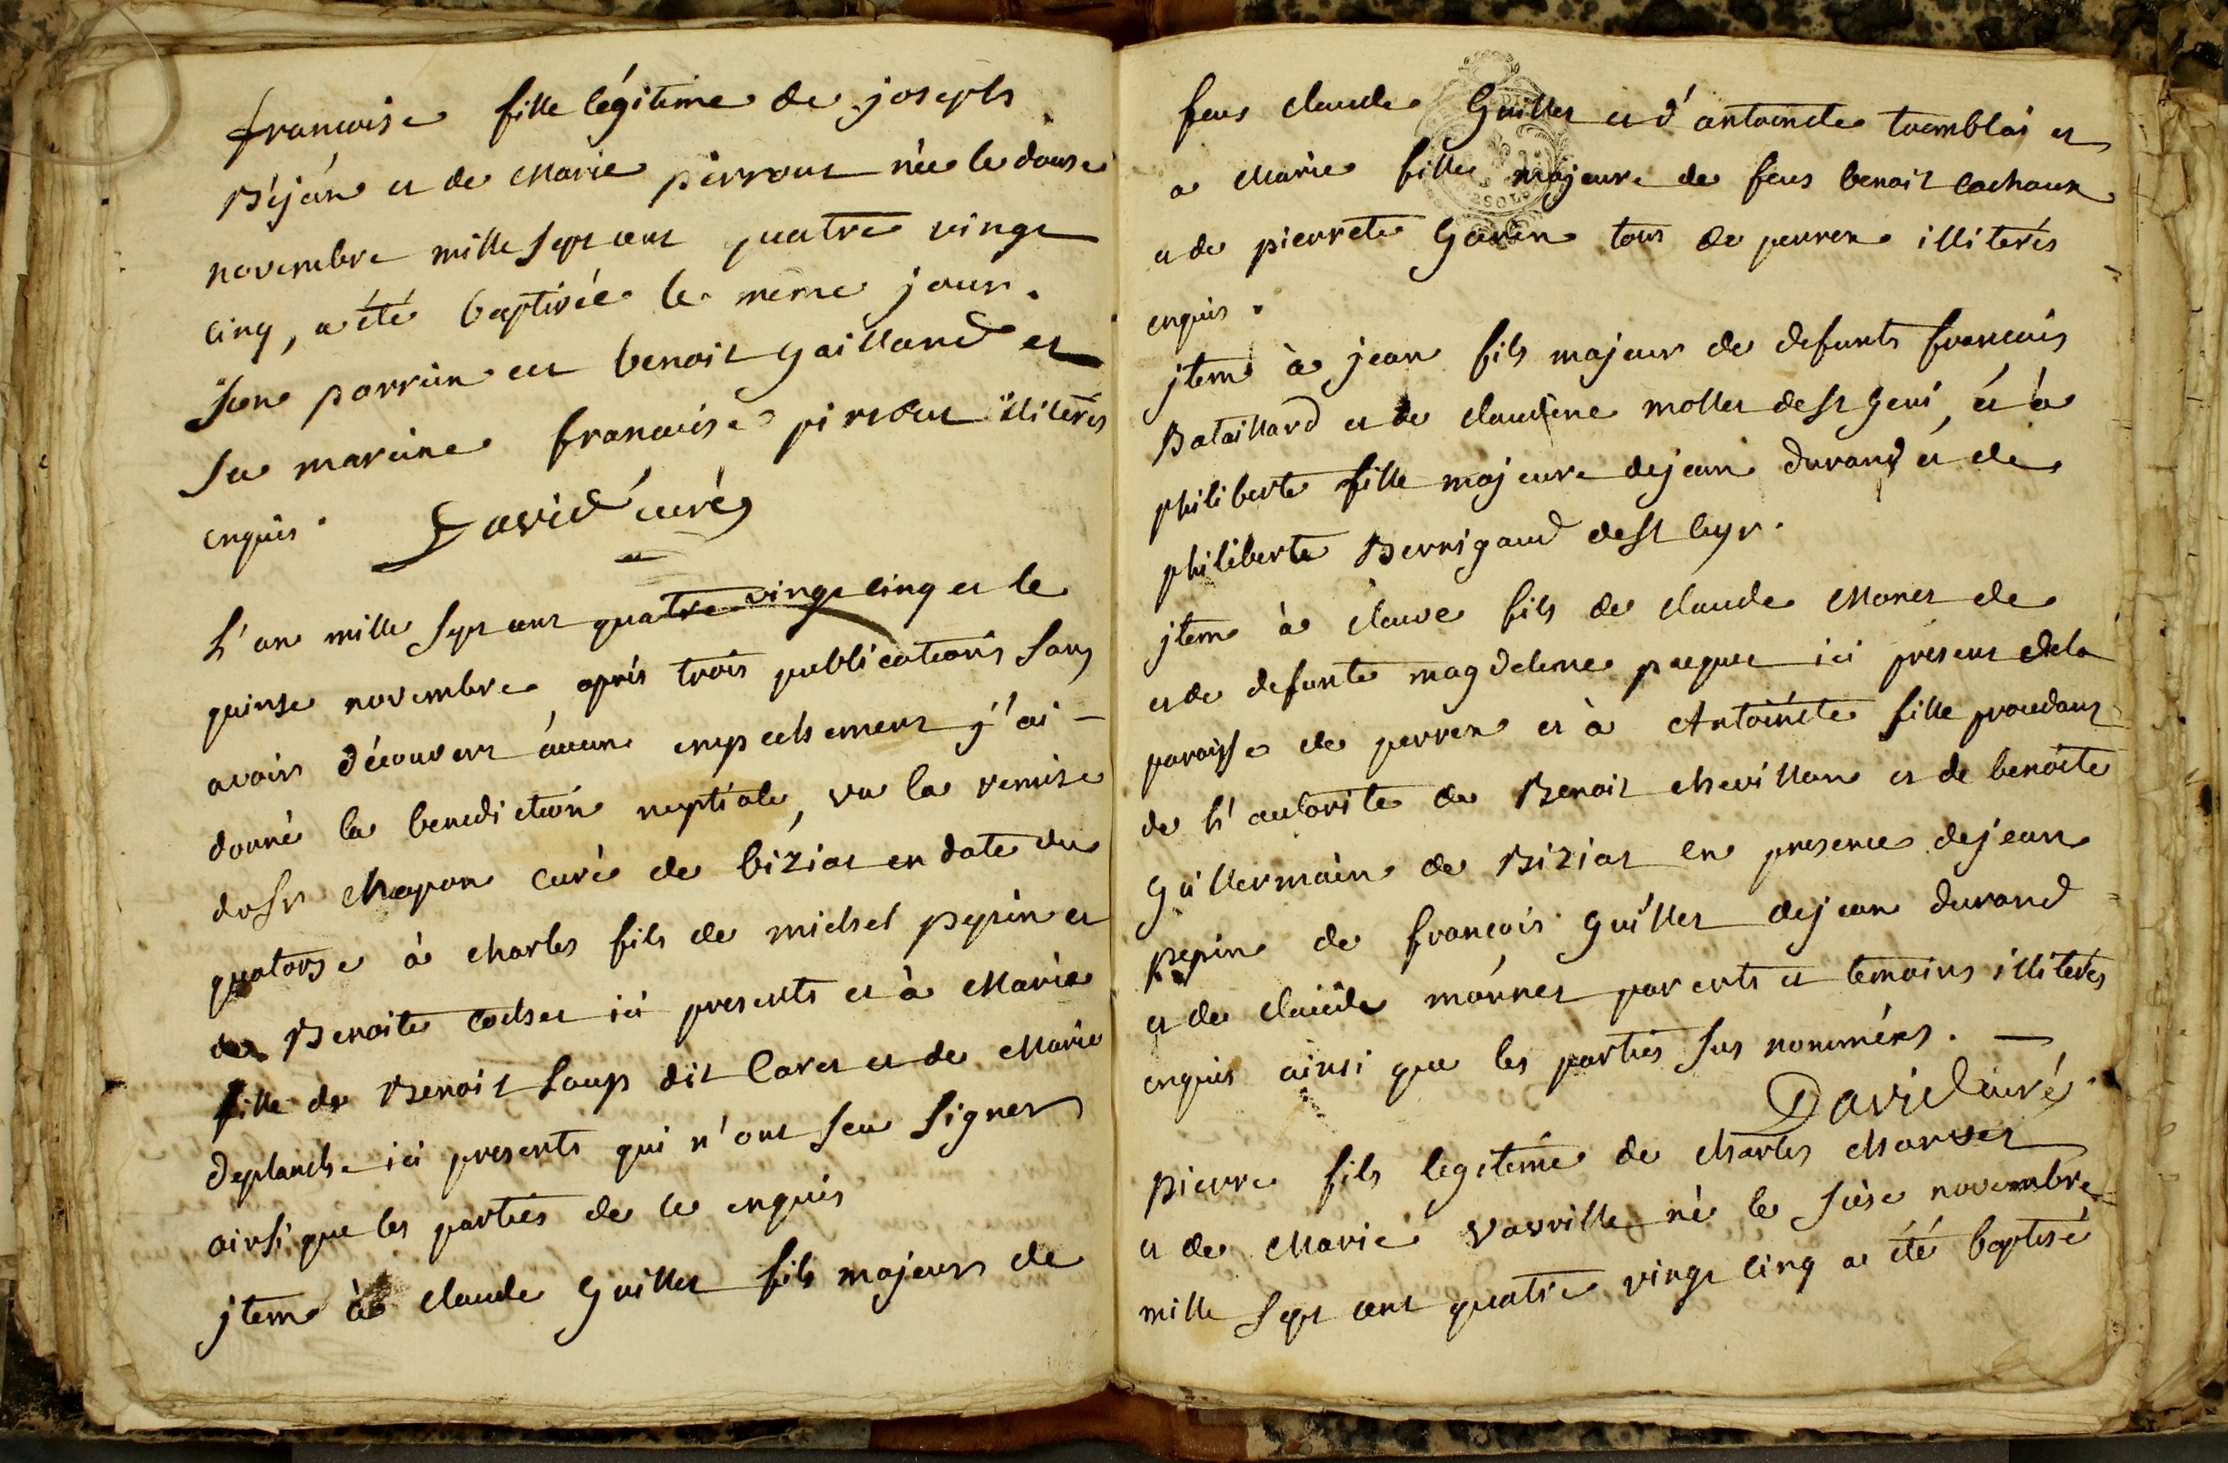 francoise fille légitime de joseph
Béján et de Marie pirrout née le douse
novembre mille sept cent quatre vingt
cinq, a été baptisée le même jour.
son parrain est benoit gaillard et
sa maraine francoise pirrout illiterés
enquis. David curé
L'an mille sept cent quatre vingt cinq et le
quinse novembre aprés trois publications sans
avoir découvert aucun empechement j'ai
donné la benediction nuptiale, vu la remise
du sr chapon curé de biziat en date du
quatorse à charles fils de michel pepin et
de Benoite cochet ici presents et à Marie
fille de Benoit Loup dit Caret et de Marie
deplanche ici presents qui n'ont seu signer
ainsi que les parties de ce enquis
jtem à claude Guillet fils majeur de
feus claude Guillet et d'antoinete tremblai et
a Marie fille majeure de feus benoit cachaux
et de pierrete Gavin tous de perrex illiterés
enquis.
jtem à jean fils majeur de defunts francois
Bataillard et de claudine mollet de st Geni, et à
philiberte fille majeure de jean durand et de
philiberte Bernigaud de st Cyr.
jtem à claude fils de claude Monet de
et de defunte magdelene paquet ici present de la
paroisse de perrex et à Antoinete fille procedant
de l'autorite de Benoit chevillon et de benoite
Guillermain de Biziat en presence de jean
pepin de françois Guillet de jean durand
et de claude monnet parents et temoins illiterés
enquis ainsi que les parties sus nommées.
David curé.
pierre fils legitime de charles
et de Marie né le sèse novembre
mille sept cent quatre vingt cinq a été baptisé